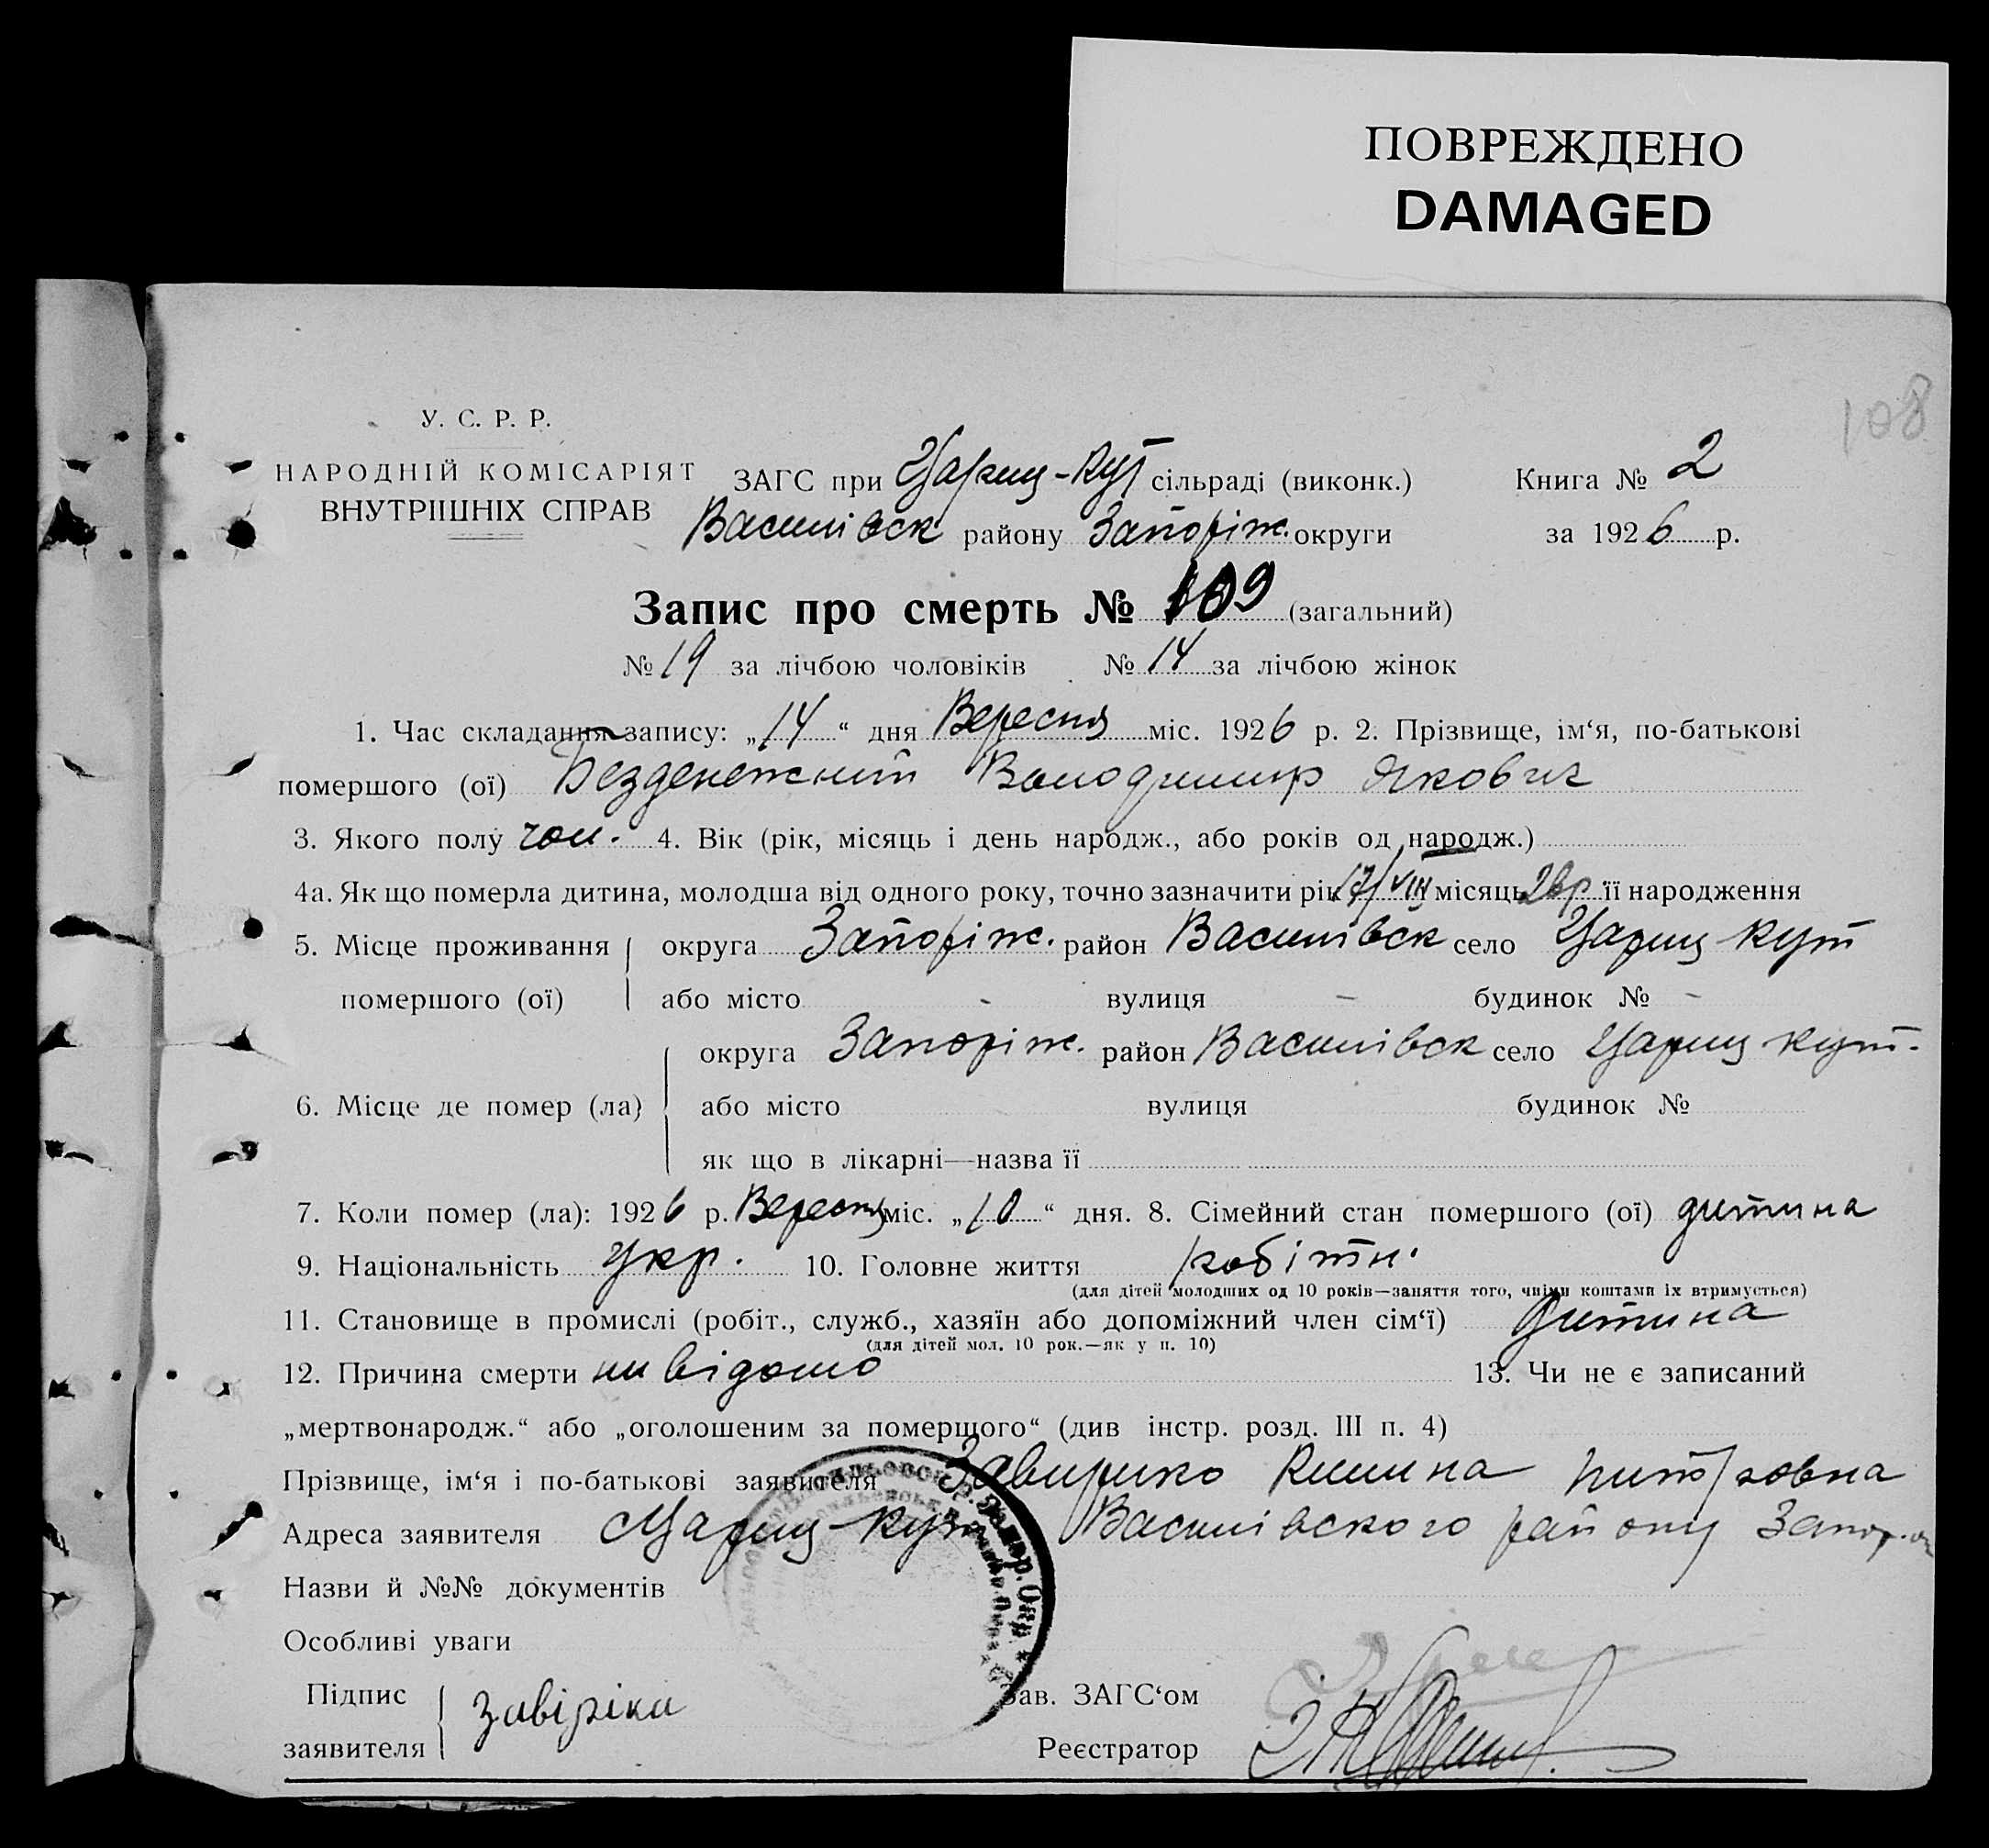 ПОВРЕЖДЕНО
DAMAGED
108
У. С. Р. Р.
НАРОДНІЙ КОМІСАРІЯТ
ВНУТРІШНІХ СПРАВ
ЗАГС при Цариц-Кут сільраді (виконк.)
Книга № 2
Василівск району Запоріж. округи
за 1926 р.
Запис про смерть № 109 (загальний)
№ 19 за лічбою чоловіків № 14 за лічбою жінок
1. Час складання запису: „14“ дня Вересня міс. 1926 р. 2. Прізвище, ім‘я, по-батькові
помершого (ої) Безденежний Володимир Якович
3. Якого полу чол. 4. Вік (рік, місяць і день народж., або років од народж.)
4а. Як що померла дитина, молодша від одного року, точно зазначити рік 17/VIII місяць 26р. її народження
5. Місце проживання помершого (ої) округа Запоріж. район Василівск село Цариц Кут
або місто - вулиця - будинок № -
6. Місце де помер (ла) округа Запоріж. район Василівск село Цариц Кут.
або місто вулиця будинок №
як що в лікарні—назва її
7. Коли помер (ла): 1926 р. Вересня міс. „10“ дня. 8. Сімейний стан помершого (ої) дитина
9. Національність Укр. 10. Головне життя робітн.
(для дітей молодших од 10 років—заняття того, чиїми коштами їх втримується)
11. Становище в промислі (робіт., служб., хазяїн або допоміжний член сім‘ї) дитина
(для дітей мол. 10 рок.—як у п. 10)
12. Причина смерти ни відомо 13. Чи не є записаний
„мертвонародж.“ або „оголошеним за помершого“ (див інстр. розд. III п. 4)
Прізвище, ім‘я і по-батькові заявителя
Адреса заявителя Цариц-Кут Василівского району Запор. ок
Назви й №№ документів
Особливі уваги
Підпис заявителя Завіріка
Зав. ЗАГС‘ом
Реєстратор